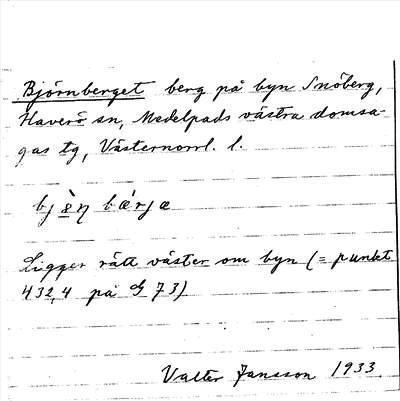 Björnberget berg på byn Snöberg,
Haverö sn, Medelpads västra domsa-
gas tg, Västernorrl. l.
bjὲ̱ɳ bǽrjæ
Ligger rätt väster om byn (= punkt
432,4 på G 73)
Valter Jansson 1933